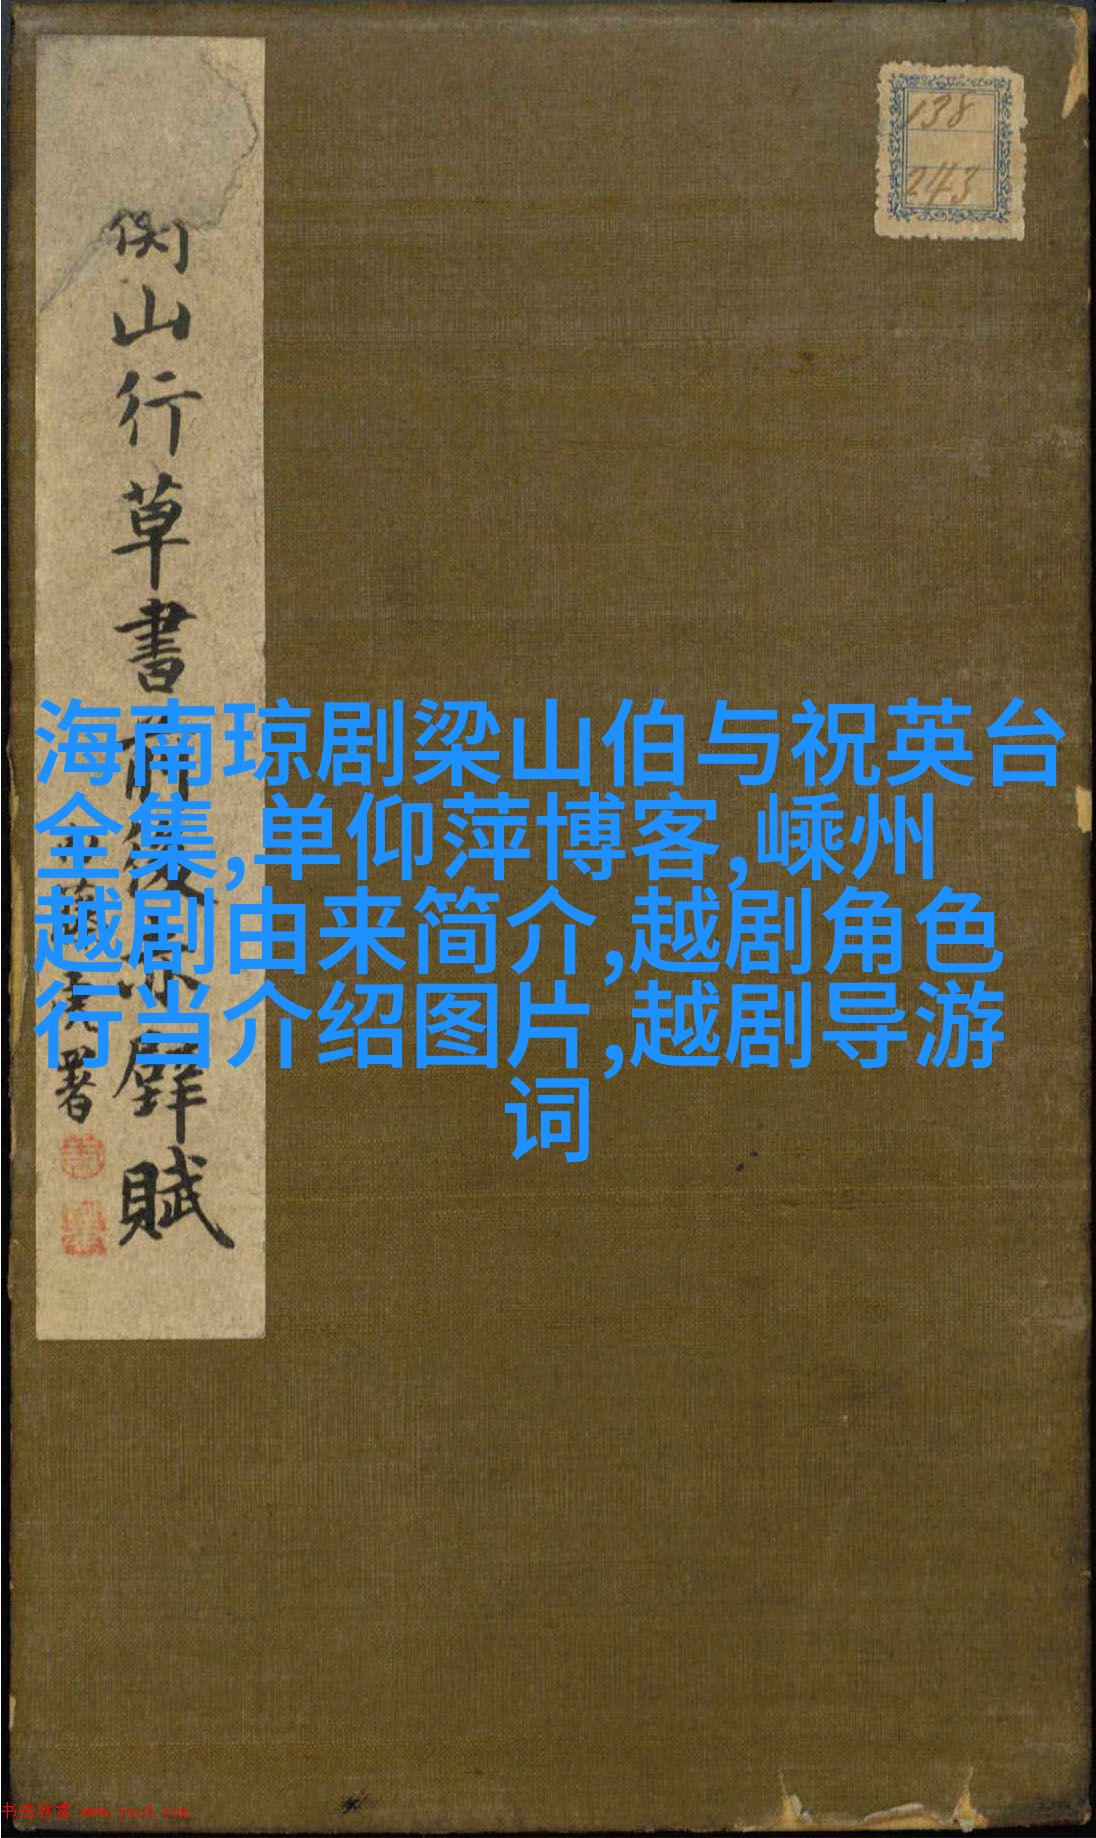 138
243
山行草書前後赤壁賦
署
海南琼剧梁山伯与祝英台
全集,单仰萍博客,嵊州
越剧由来简介,越剧角色
行当介绍图片,越剧导游
词
书法欣赏 www.yac8.com